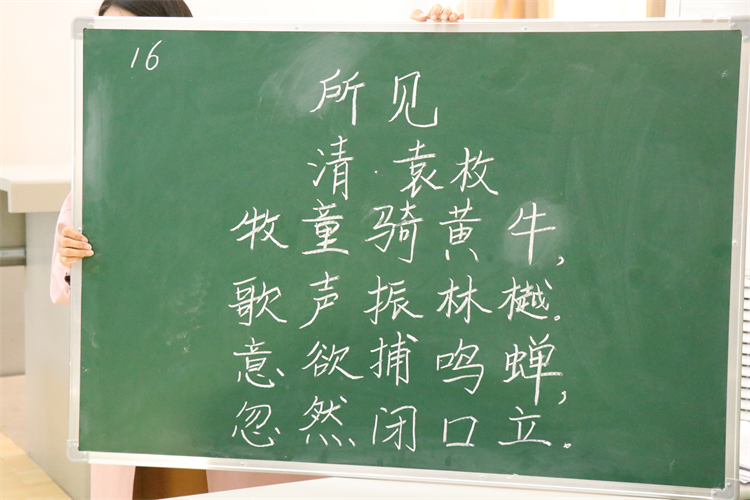 16
所见
清·袁枚
牧童骑黄牛,
歌声振林樾。
意欲捕鸣蝉,
忽然闭口立。